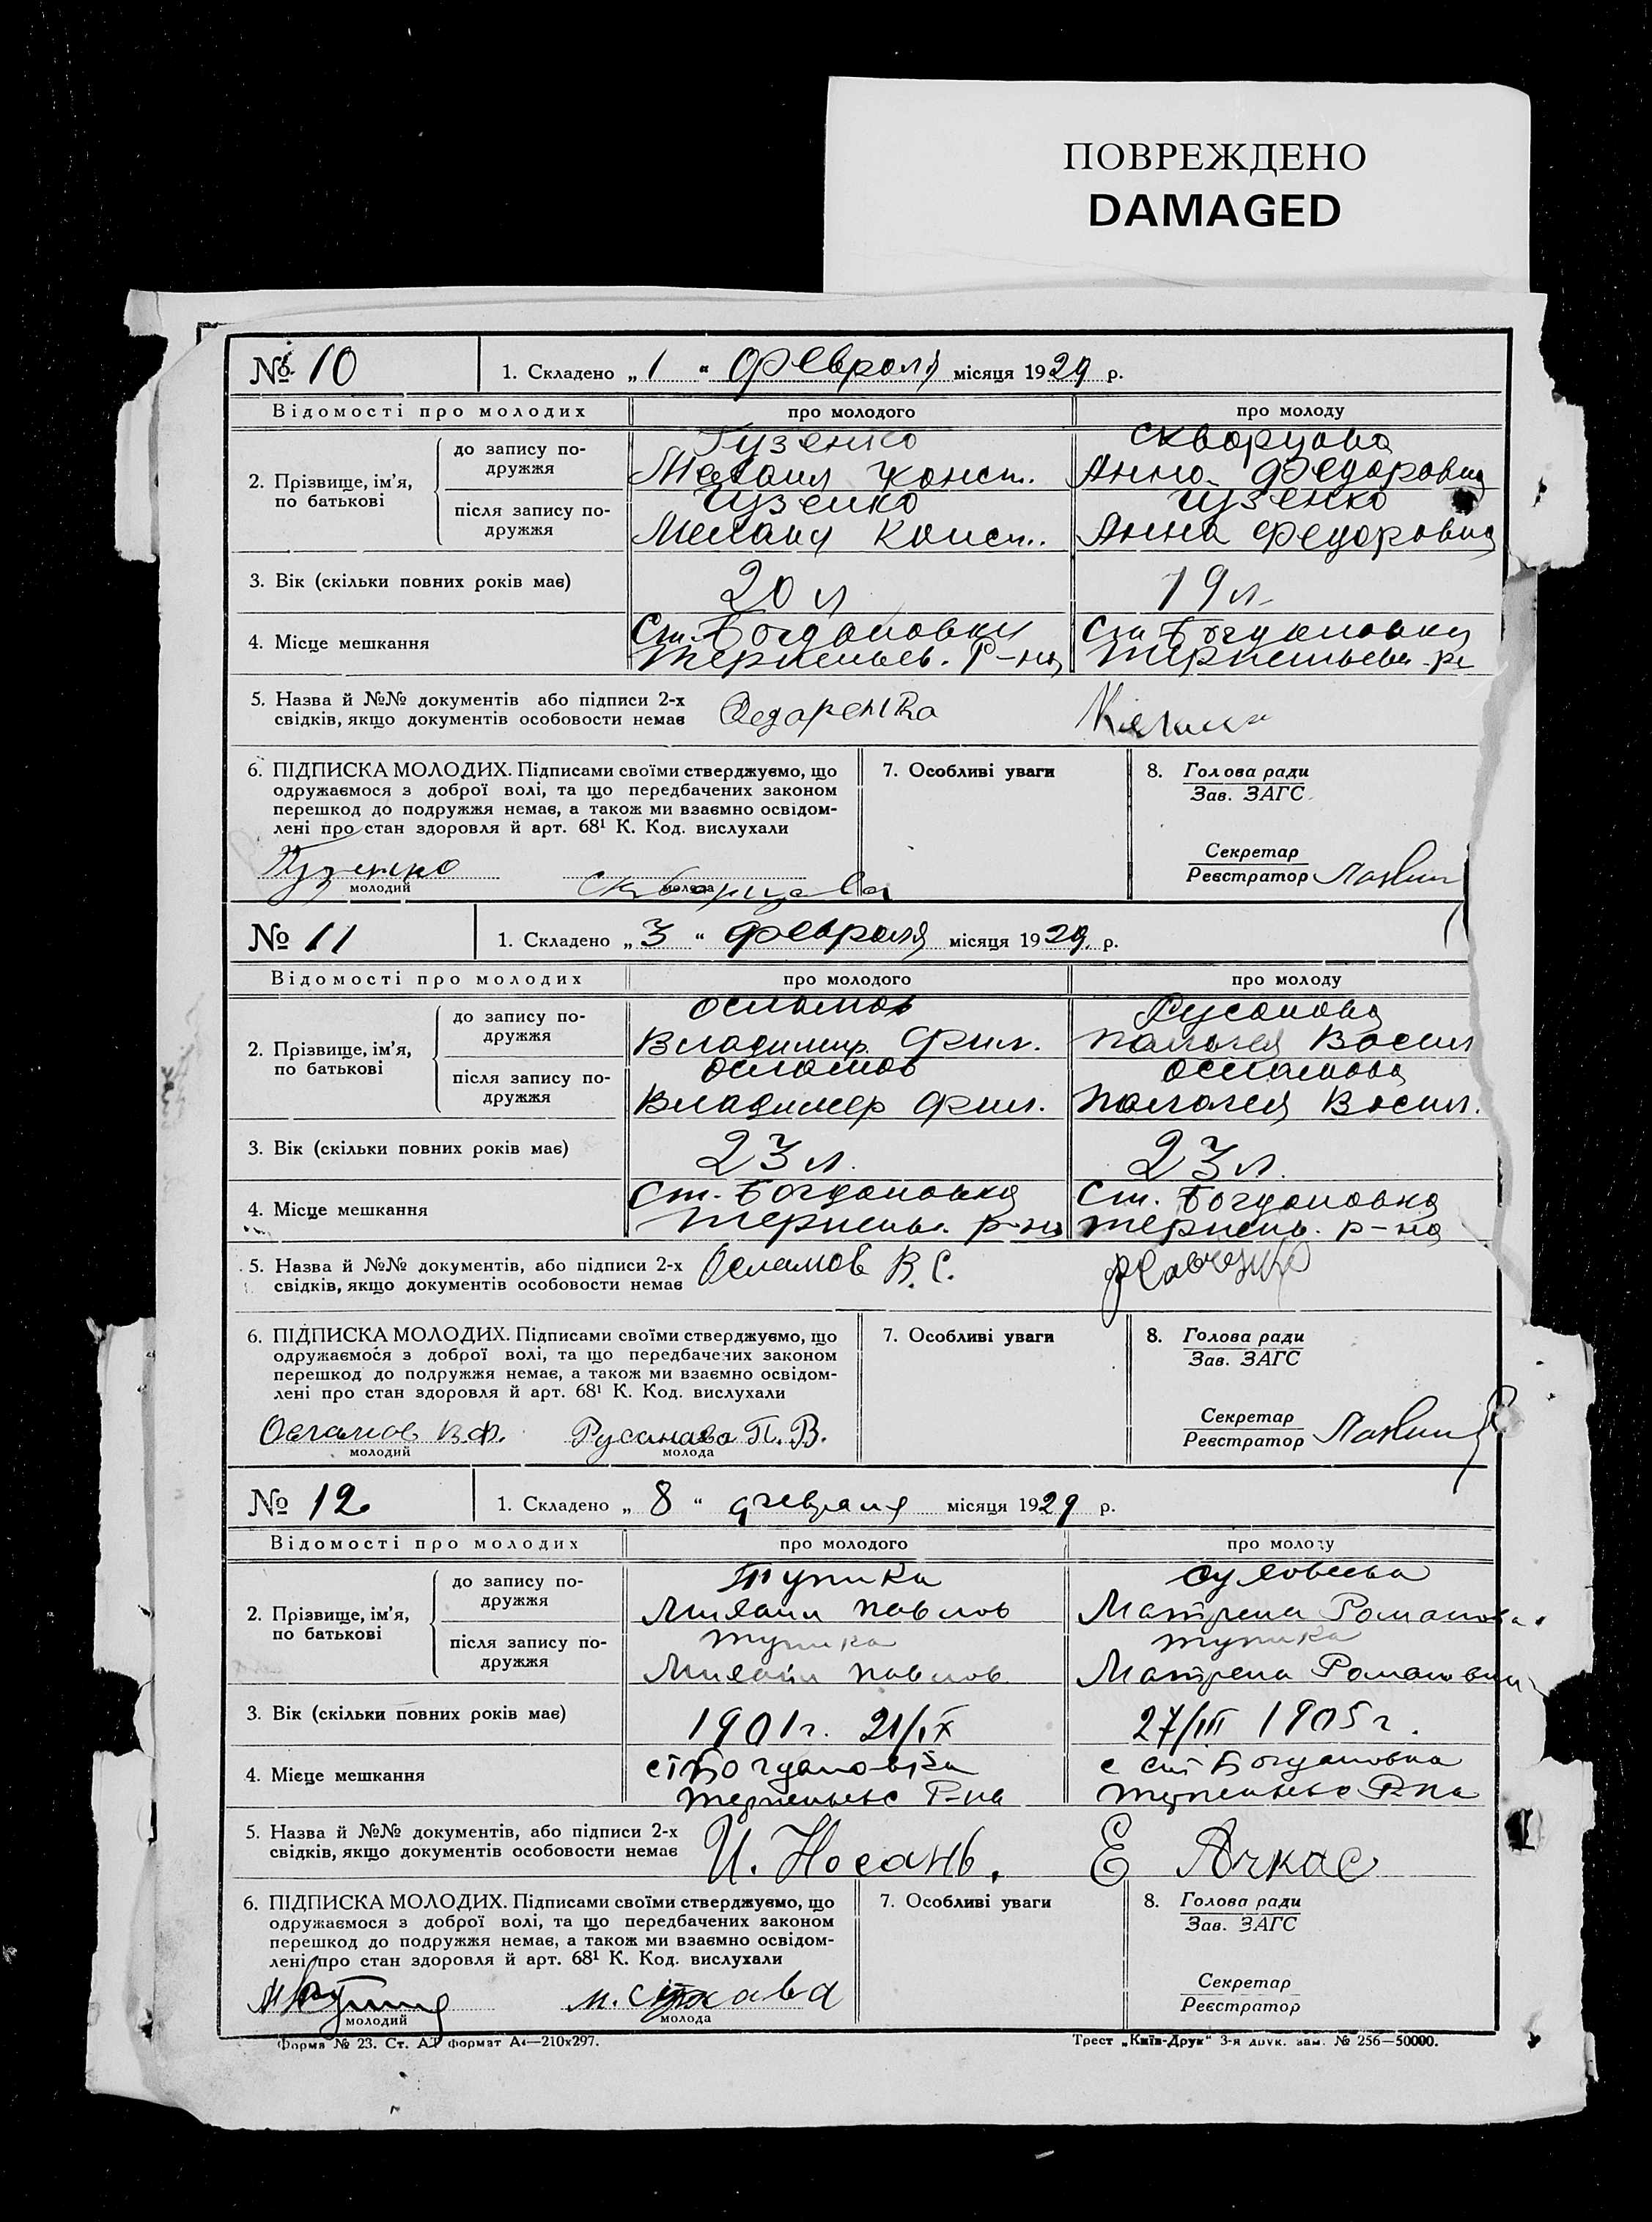 ПОВРЕЖДЕНО
DAMAGED
№ 10
1. Складено „ 1 " февраля місяця 1929 р.
Відомості про молодих
про молодого
про молоду
2. Прізвище, ім'я, по батькові
до запису подружжя
Гузенко
Михаил Конст.
Скворцова
Анна Федоровна
після запису подружжя
Гузенко
Михаил Конст.
Гузенко
Анна Федоровна
3. Вік (скільки повних років має)
20 л
19 л
4. Місце мешкання
Ст. Богдановки
Терпеньев. Р-на
Ст Богдановки
5. Назва й №№ документів або підписи 2-х
свідків, якщо документів особовости немає
6. ПІДПИСКА МОЛОДИХ. Підписами своїми стверджуємо, що
одружаємося з доброї волі, та що передбачених законом
перешкод до подружжя немає, а також ми взаємно освідом-
лені про стан здоровля й арт. 68¹ К. Код. вислухали
Гузенко
молодий
Скворцова
молода
7. Особливі уваги
8. Голова ради
Зав. ЗАГС
Секретар
Реєстратор
№ 11
1. Складено „ 3 " февраля місяця 1929 р.
Відомості про молодих
про молодого
про молоду
2. Прізвище, ім'я,
по батькові
до запису по-
дружжя
Осламов
Владимир Фил.
Русанова
Палагея Васил
після запису по-
дружжя
Осламов
Владимер Фил.
Осламова
Палагея Васил.
3. Вік (скільки повних років має)
23 л.
23 л.
4. Місце мешкання
Ст. Богдановка
Терпень. р-на
Ст. Богдановка
Терпень. р-на
5. Назва й №№ документів, або підписи 2-х
свідків, якщо документів особовости немає
Осламов В. С.
6. ПІДПИСКА МОЛОДИХ. Підписами своїми стверджуємо, що
одружаємося з доброї волі, та що передбачених законом
перешкод до подружжя немає, а також ми взаємно освідом-
лені про стан здоровля й арт. 68¹ К. Код. вислухали
Осламов В.Ф.
молодий
Русанава П. В.
молода
7. Особливі уваги
8. Голова ради
Зав. ЗАГС
Секретар
Реєстратор
№ 12
1. Складено „ 8 " февраля місяця 1929 р.
Відомості про молодих
про молодого
про молоду
2. Прізвище, ім'я,
по батькові
до запису по-
дружжя
Тупика
Михаил Павлов
Матрена Романова
після запису по-
дружжя
Тупика
Михаил Павлов
Тупика
Матрена Романовна
3. Вік (скільки повних років має)
1901 г. 21/IX
27/III 1905 г.
4. Місце мешкання
ст Богдановка
Р-на
с ст Богдановка
Р-на
5. Назва й №№ документів, або підписи 2-х
свідків, якщо документів особовости немає
И. Носань.
Е Аркас
6. ПІДПИСКА МОЛОДИХ. Підписами своїми стверджуємо, що
одружаємося з доброї волі, та що передбачених законом
перешкод до подружжя немає, а також ми взаємно освідом-
лені про стан здоровля й арт. 68¹ К. Код. вислухали
молодий
молода
7. Особливі уваги
8. Голова ради
Зав. ЗАГС
Секретар
Реєстратор
Форма № 23. Ст. АТ формат А4—210х297.
Трест „Київ-Друк" 3-я друк. зам. № 256—50000.